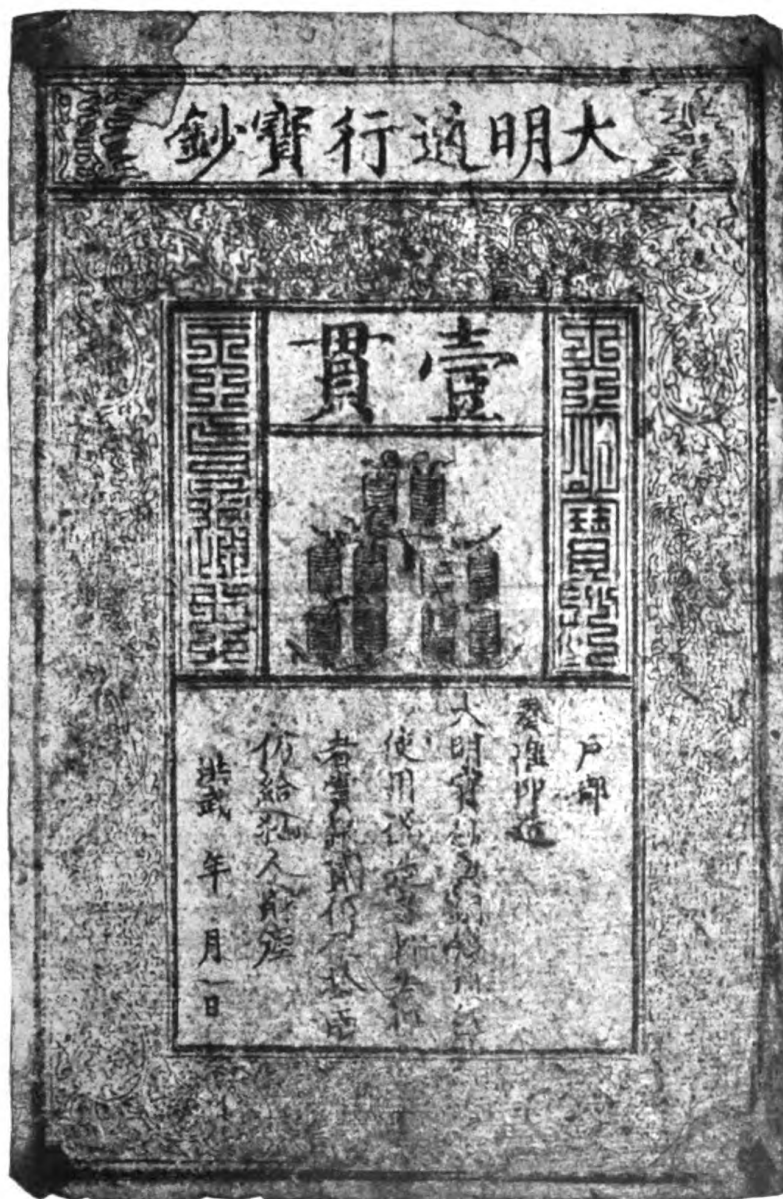 大明通行寶鈔
壹貫
大明寶鈔
天下通行
户部
奏准印造
大明寶鈔與銅錢通行
使用偽造者斬告捕
者賞銀貳佰伍拾兩
仍給犯人財產
洪武 年 月 日